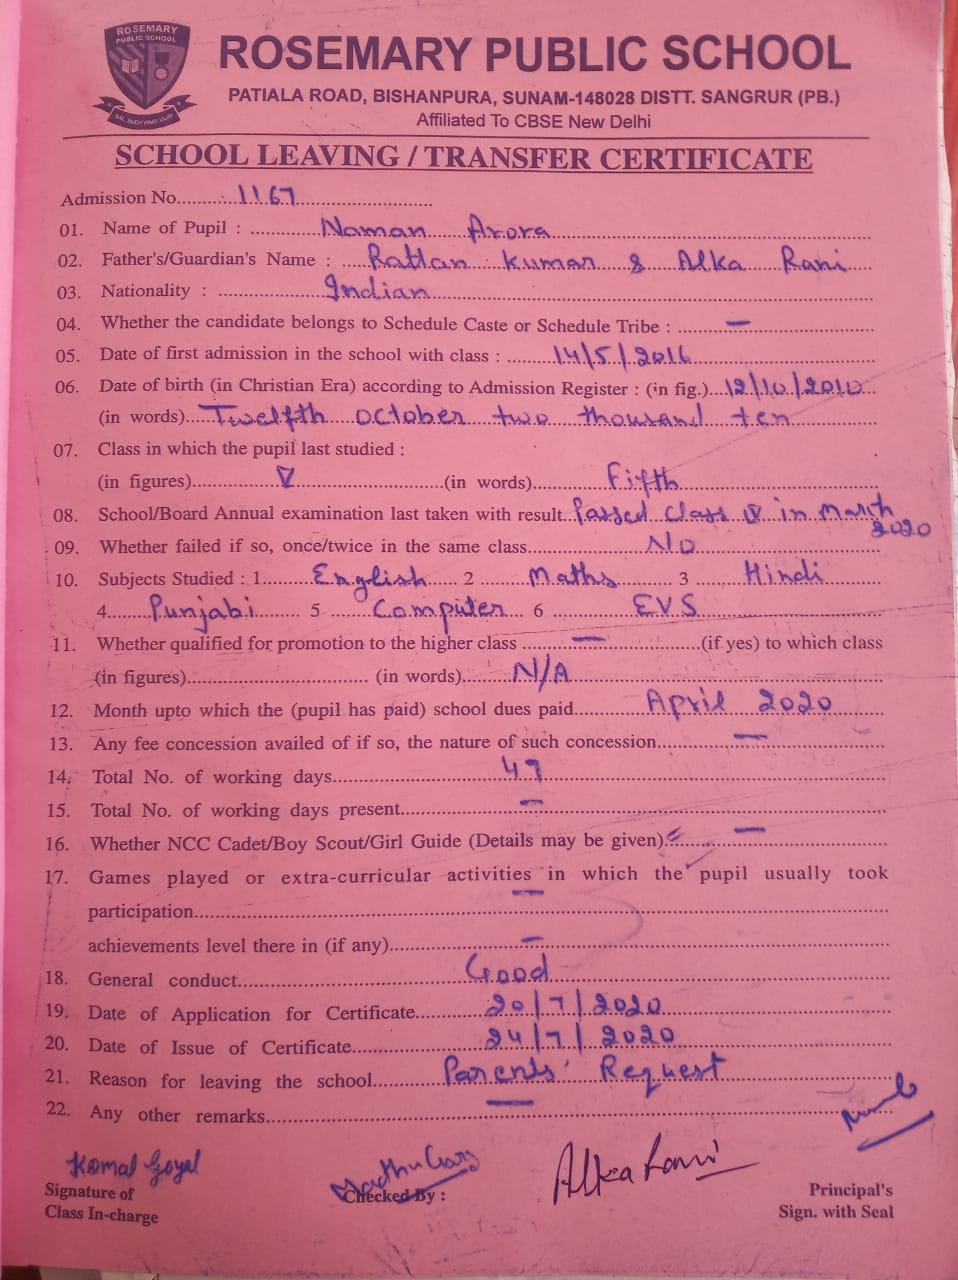 ROSEMARY
PUBLIC SCHOOL
ROSEMARY PUBLIC SCHOOL
PATIALA ROAD, BISHANPURA, SUNAM-148028 DISTT. SANGRUR (PB.)
Affiliated To CBSE New Delhi
SCHOOL LEAVING / TRANSFER CERTIFICATE
Admission No. 1167
01. Name of Pupil : Naman Arora
02. Father's/Guardian's Name : Rattan Kumar & Alka Rani
03. Nationality : Indian
04. Whether the candidate belongs to Schedule Caste or Schedule Tribe : —
05. Date of first admission in the school with class : 14/5/2016
06. Date of birth (in Christian Era) according to Admission Register : (in fig.) 12/10/2010
(in words) Twelfth October two thousand ten
07. Class in which the pupil last studied :
(in figures) V (in words) Fifth
08. School/Board Annual examination last taken with result Passed Class in March
2020
09. Whether failed if so, once/twice in the same class No
10. Subjects Studied : 1 English 2 Maths 3 Hindi
4 Punjabi 5 Computer 6 EVS
11. Whether qualified for promotion to the higher class — (if yes) to which class
(in figures) (in words) N/A
12. Month upto which the (pupil has paid) school dues paid April 2020
13. Any fee concession availed of if so, the nature of such concession —
14. Total No. of working days 47
15. Total No. of working days present —
16. Whether NCC Cadet/Boy Scout/Girl Guide (Details may be given) —
17. Games played or extra-curricular activities in which the pupil usually took
participation —
achievements level there in (if any) —
18. General conduct Good
19. Date of Application for Certificate 20/7/2020
20. Date of Issue of Certificate 24/7/2020
21. Reason for leaving the school Parents' Request
22. Any other remarks —
Komal Goyal Madhu Garg Alka Rani
Signature of Checked By : Principal's
Class In-charge Sign. with Seal